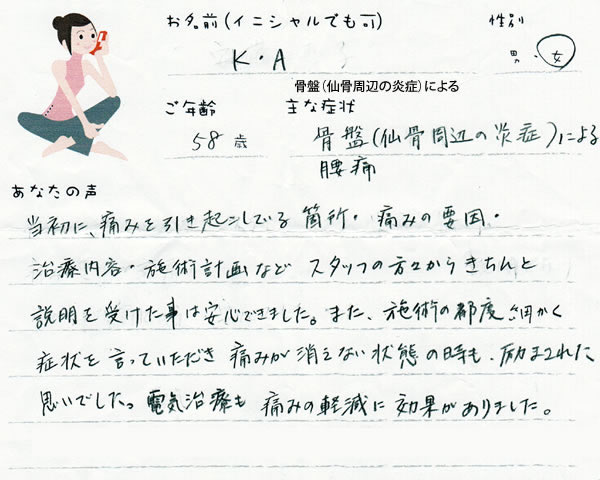 お名前(イニシャルでも可)
性別
K・A
男・女
骨盤(仙骨周辺の炎症)による
ご年齢
主な症状
58歳
骨盤(仙骨周辺の炎症)による
腰痛
あなたの声
当初に、痛みを引き起こしている箇所・痛みの要因・
治療内容・施術計画など スタッフの方々からきちんと
説明を受けた事は安心できました。また、施術の都度細かく
症状を言っていただき 痛みが消えない状態の時も、励まされた
思いでした。電気治療も 痛みの軽減に効果がありました。